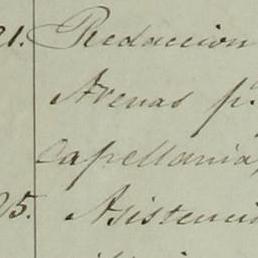 21. Redaccion
Arenas p.
Capellania,
95. Asistenci